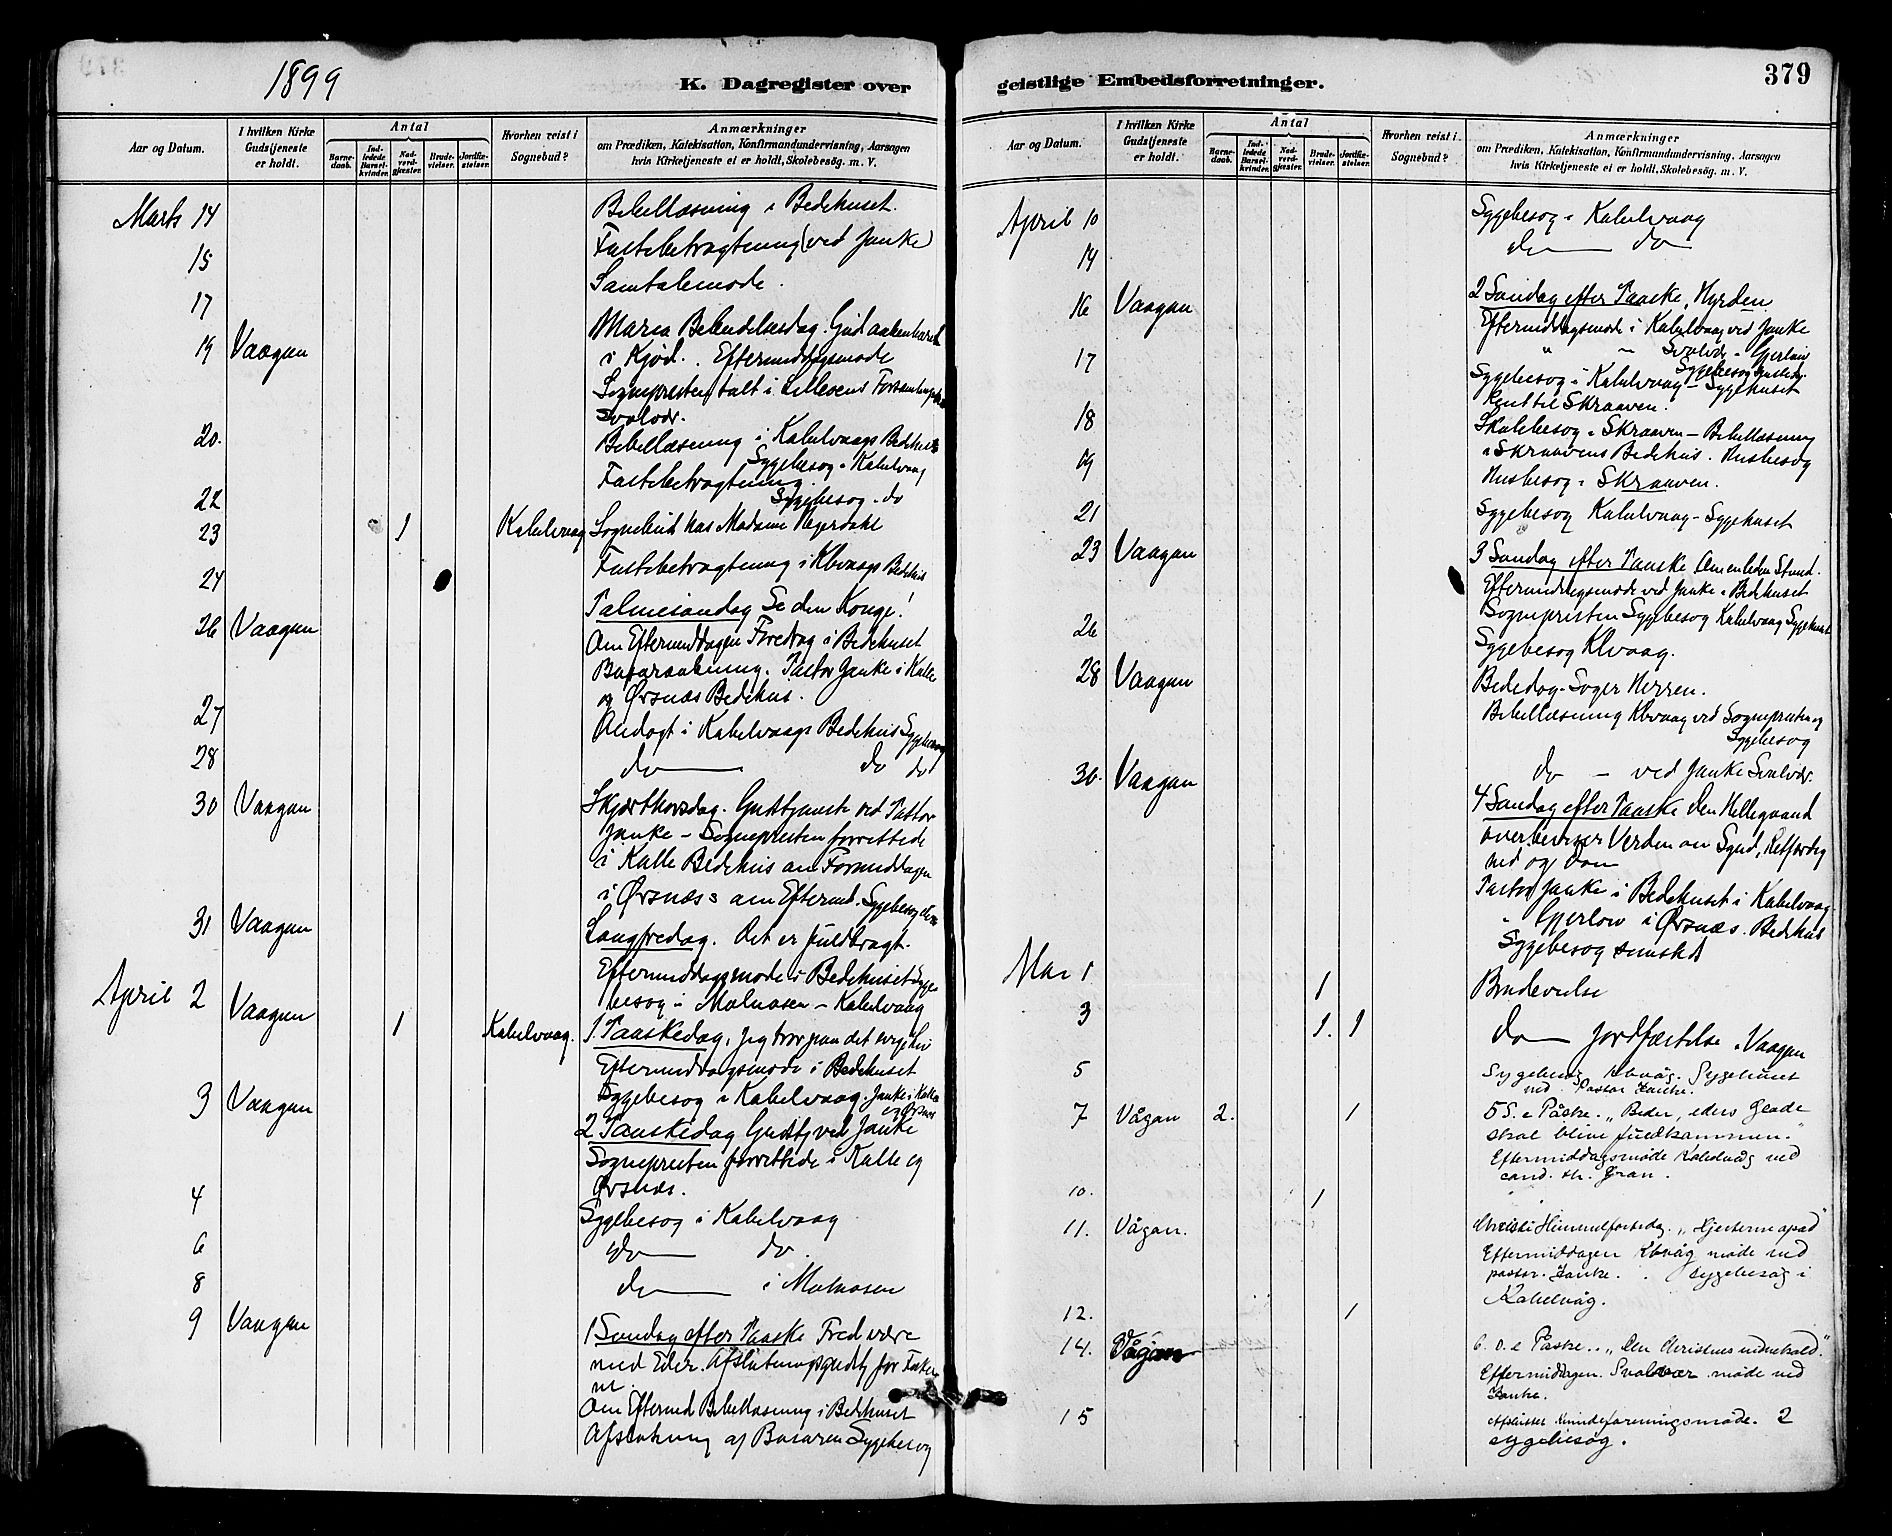 1899
K. Dagregister over
Aar og Datum.
I hvilken Kirke Gudstjeneste er holdt.
Antal
Barne-daab.
Ind-ledede Barsel-kvinder.
Nad-verd-gjæster.
Brude-vielser.
Jordfæ-stelser.
Hvorhen reist i Sognebud?
Anmærkninger
om Prædiken, Katekisation, Konfirmandundervisning, Aarsagen
hvis Kirketjeneste ei er holdt, Skolebesøg. m. V.
Marts 14 Bibellæsning i Bedehuset.
15 Fastebetragtning (ved Janke)
17 Samtalemøde.
19 Vaagan Maria Bebudelsesdag. Gud aabenbaret
i Kjød. Eftermiddagsmøde
Sognepresten talt i Forsamlingshus
Svolvær.
20. Bibellæsning i Kabelvaags Bedehus
Sygebesøg i Kabelvaag
22 Fastebetragtning.
Sygebesøg do
23 1 Kabelvaag Sognebud hos Madame
24 Fastebetragtning i Kbvaags Bedehus
26 Vaagan Palmesøndag Se den Konge!
Om Eftermiddagen Foredrag i Bedehuset
Basaraabning. Pastor Janke i Kalle
og Ørsnæs Bedehus.
27 Andagt i Kabelvaags Bedehus Sygebesøg
28 do do do
30 Vaagan Skjærthorsdag. Gudstjeneste ved Pastor
Janke – Sognepresten forrettede
i Kalle Bedehus om Formiddagen
i Ørsnæs om Eftermd. Sygebesøg
31 Vaagan Langfredag. Det er fuldbragt.
Eftermiddagsmøde i Bedehuset Syge
besøg i Molnosen – Kabelvaag
April 2 Vaagan 1 Kabelvaag. 1. Paaskedag. Jeg tror paa det evige Liv
Eftermiddagsmøde i Bedehuset
Sygebesøg i Kabelvaag. Janke i Kalle
og Ørsnes
3 Vaagan 2 Paaskedag Gudstj ved Janke
Sognepresten forrettede i Kalle og
Ørsnæs.
4 Sygebesøg i Kabelvaag
6 do do.
8 do i Molnosen
9 Vaagan 1 Søndag efter Paaske Fred være
med Eder. Afslutningsgudtj for Fisker
ne.
Om Eftermd Bibellæsning i Bedehuset
Afslutning af Basaren Sygebesøg
geistlige Embedsforretninger.
379
Aar og Datum.
I hvilken Kirke Gudstjeneste er holdt.
Antal
Barne-daab.
Ind-ledede Barsel-kvinder.
Nad-verd-gjæster.
Brude-vielser.
Jordfæ-stelser.
Hvorhen reist i Sognebud?
Anmærkninger
om Prædiken, Katekisation, Konfirmandundervisning, Aarsagen
hvis Kirketjeneste ei er holdt, Skolebesøg. m. V.
April 10 Sygebesøg i Kabelvaag
14 do do
16 Vaagan 2 Søndag efter Paaske, Hyrden
Eftermiddagsmøde i Kabelvaag ved Janke
" " Svolvær Gjerløw
17 Sygebesøg i Kabelvaag – Sygehuset
til Skraaven.
18 Skolebesøg i Skraaven – Bibellæsning
i Skraavens Bedehus. Husbesøg
19 Husbesøg i Skraaven.
21 Sygebesøg Kabelvaag – Sygehuset
23 Vaagan 3 Søndag efter Paaske Om en liden Stund.
Eftermiddagsmøde ved Janke i Bedehuset
Sognepresten Sygebesøg Kabelvaag Sygehuset
26 Sygebesøg Kbvaag.
28 Vaagan Bededag. Søger Herren.
Bibellæsning Kbvaag ved Sognepresten og
Sygebesøg
do – ved Janke Svolvær.
30. Vaagan 4 Søndag efter Paaske Den Helligaand
overbeviser Verden om Synd, Retfærdig
hed og Dom
Pastor Janke i Bedehuset i Kabelvaag
" Gjerløw i Ørsnæs. Bedehus
Sygebesøg
Mai 1 1 Brudevielse
3 1. 1 do Jordfæstelse i Vaagan
5 Sygebesøg Kbvåg. Sygehuset
ved Pastor Janke.
7 Vågan 2. 1 5 S. e Påske. „Beder, eders Glæde
skal blive fuldkommen."
Eftermiddagsmøde Kabelvåg ved
cand. th. Gran.
10. 1
11. Vågan. Christi Himmelfartsdag.
Eftermiddagen Kbvåg møde ved
pastor Janke. Sygebesøg i
Kabelvåg.
12. 1
14. Vågan 6. S. e Påske. „Den Christnes
Eftermiddagen. Svolvær møde ved
Janke.
15 Kvindeforeningsmøde. 2
sygebesøg.